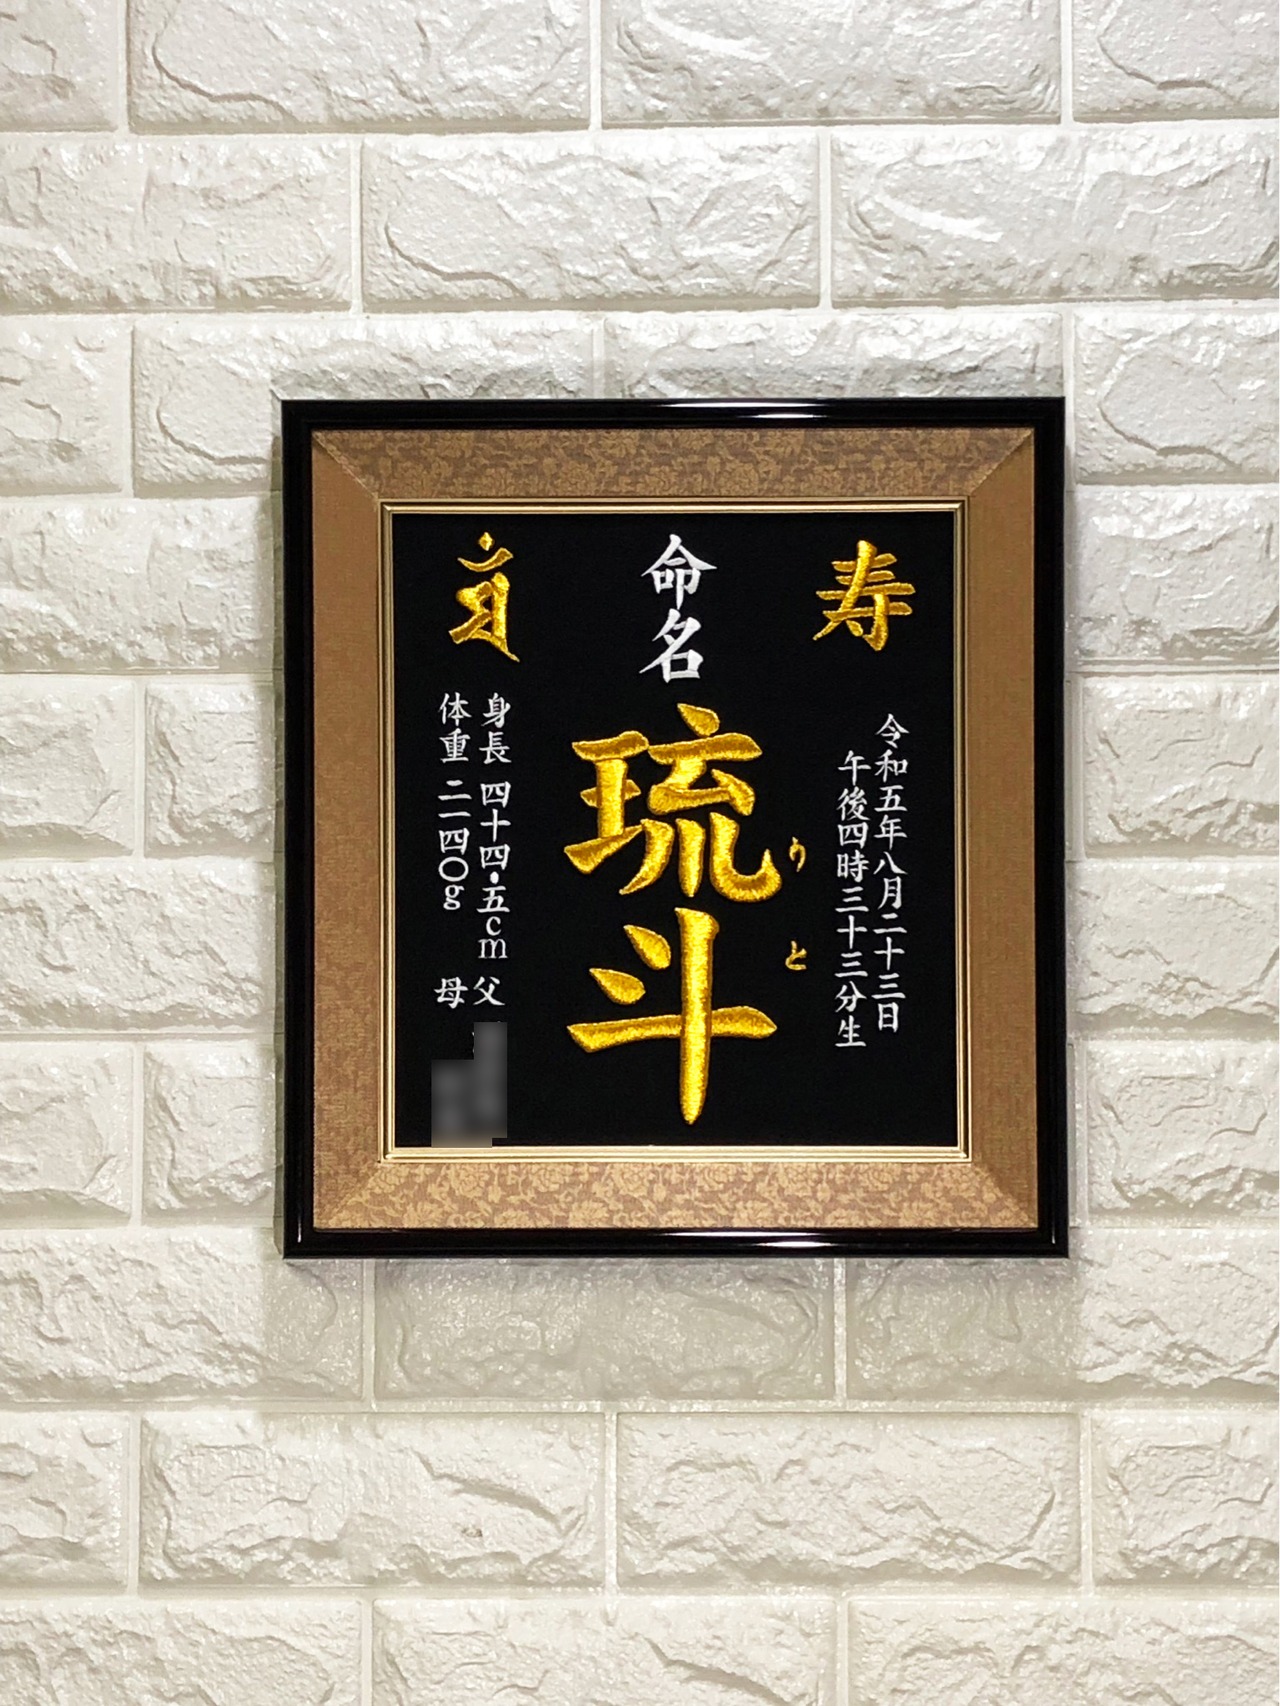 寿
令和五年八月二十三日
午後四時三十三分生
命名
琉斗
りと
身長 四十四・五cm
体重 二二四〇g
父
母